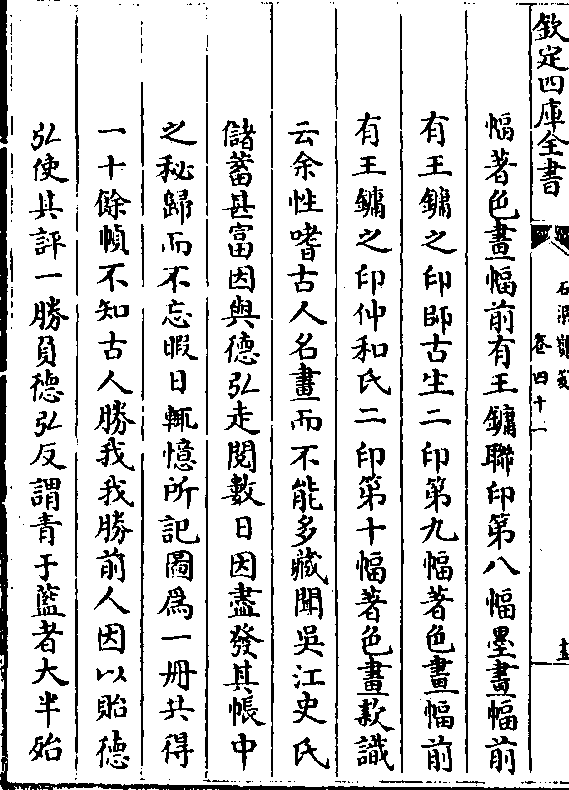 欽定四庫全書
石渠寶笈
卷四十一
幅著色畫幅前有王鏞聯印第八幅墨畫幅前
有王鏞之印師古生二印第九幅著色畫幅前
有王鏞之印仲和氏二印第十幅著色畫款識
云余性嗜古人名畫而不能多藏聞吳江史氏
儲蓄甚富因與德弘走閱數日因盡發其帳中
之秘歸而不忘暇日輒憶所記圖為一冊共得
一十餘幀不知古人勝我我勝前人因以貽德
弘使其評一勝負德弘反謂青于藍者大半殆